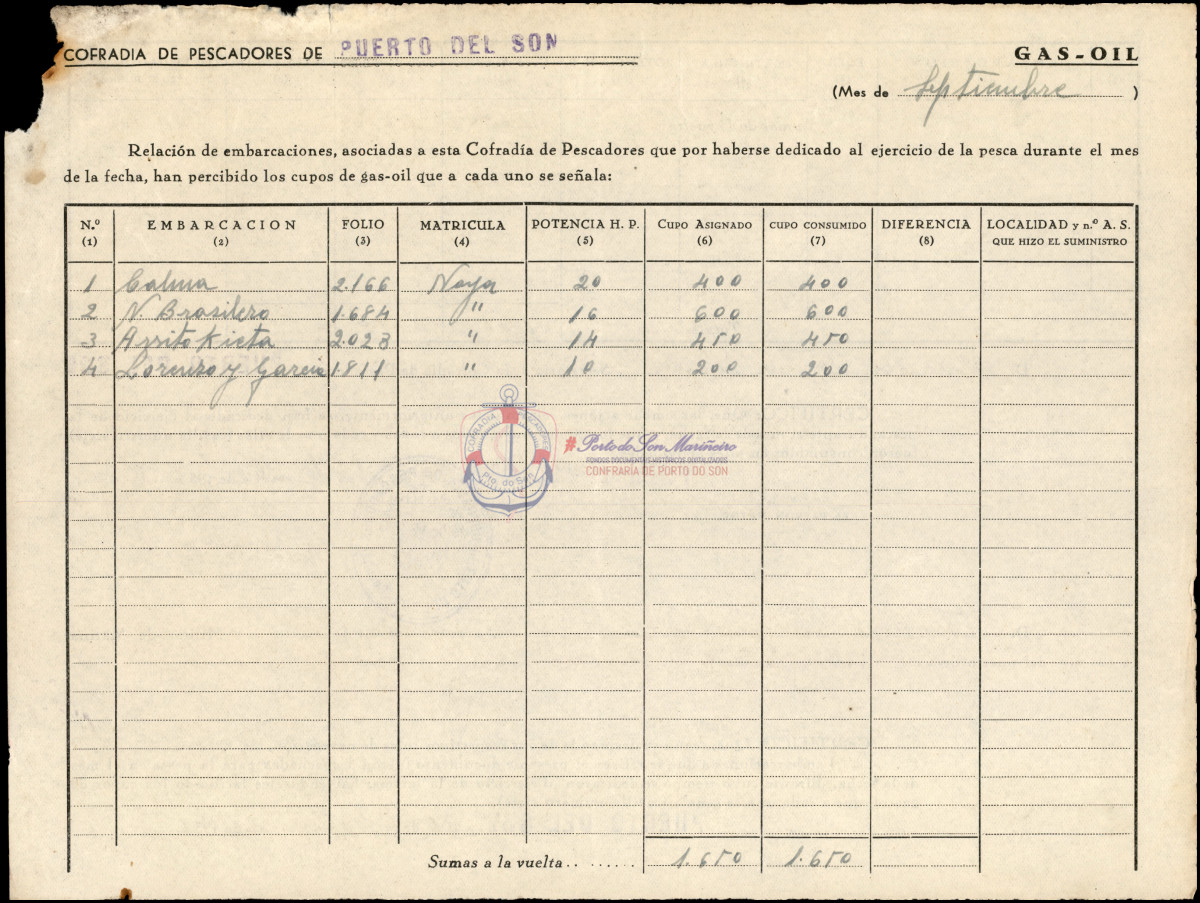 COFRADIA DE PESCADORES DE PUERTO DEL SON
GAS-OIL
(Mes de Septiembre )
Relación de embarcaciones, asociadas a esta Cofradía de Pescadores que por haberse dedicado al ejercicio de la pesca durante el mes
de la fecha, han percibido los cupos de gas-oil que a cada uno se señala:
N.º (1) EMBARCACION (2) FOLIO (3) MATRICULA (4) POTENCIA H. P. (5) CUPO ASIGNADO (6) CUPO CONSUMIDO (7) DIFERENCIA (8) LOCALIDAD y n.º A. S. QUE HIZO EL SUMINISTRO
1 Calma 2.166 Noya 20 400 400
2 N. Brasilero 1.684 " 16 600 600
3 Arritokieta 2.023 " 14 450 450
4 Lorenzo y Garcia 1.811 " 10 200 200
COFRADIA PESCADORES
Pto. do Son
#PortodoSon Mariñeiro
FONDOS DOCUMENTAIS HISTÓRICOS DIXITALIZADOS
CONFRARÍA DE PORTO DO SON
Sumas a la vuelta........ 1.650 1.650